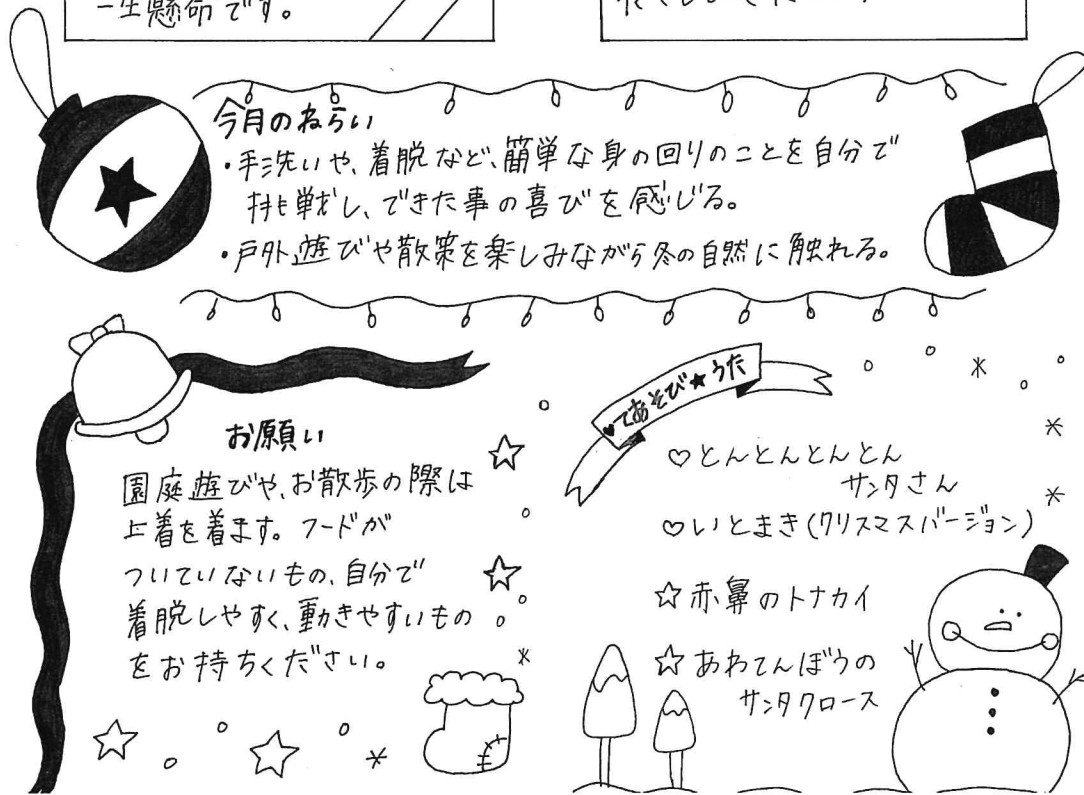 一生懸命です。
今月のねらい
・手洗いや、着脱など、簡単な身の回りのことを自分で
挑戦し、できた事の喜びを感じる。
・戸外遊びや散策を楽しみながら冬の自然に触れる。
お願い
園庭遊びや、お散歩の際は
上着を着ます。フードが
ついていないもの、自分で
着脱しやすく、動きやすいもの
をお持ちください。
♥てあそび★うた
♡とんとんとんとん
サンタさん
♡いとまき(クリスマスバージョン)
☆赤鼻のトナカイ
☆あわてんぼうの
サンタクロース